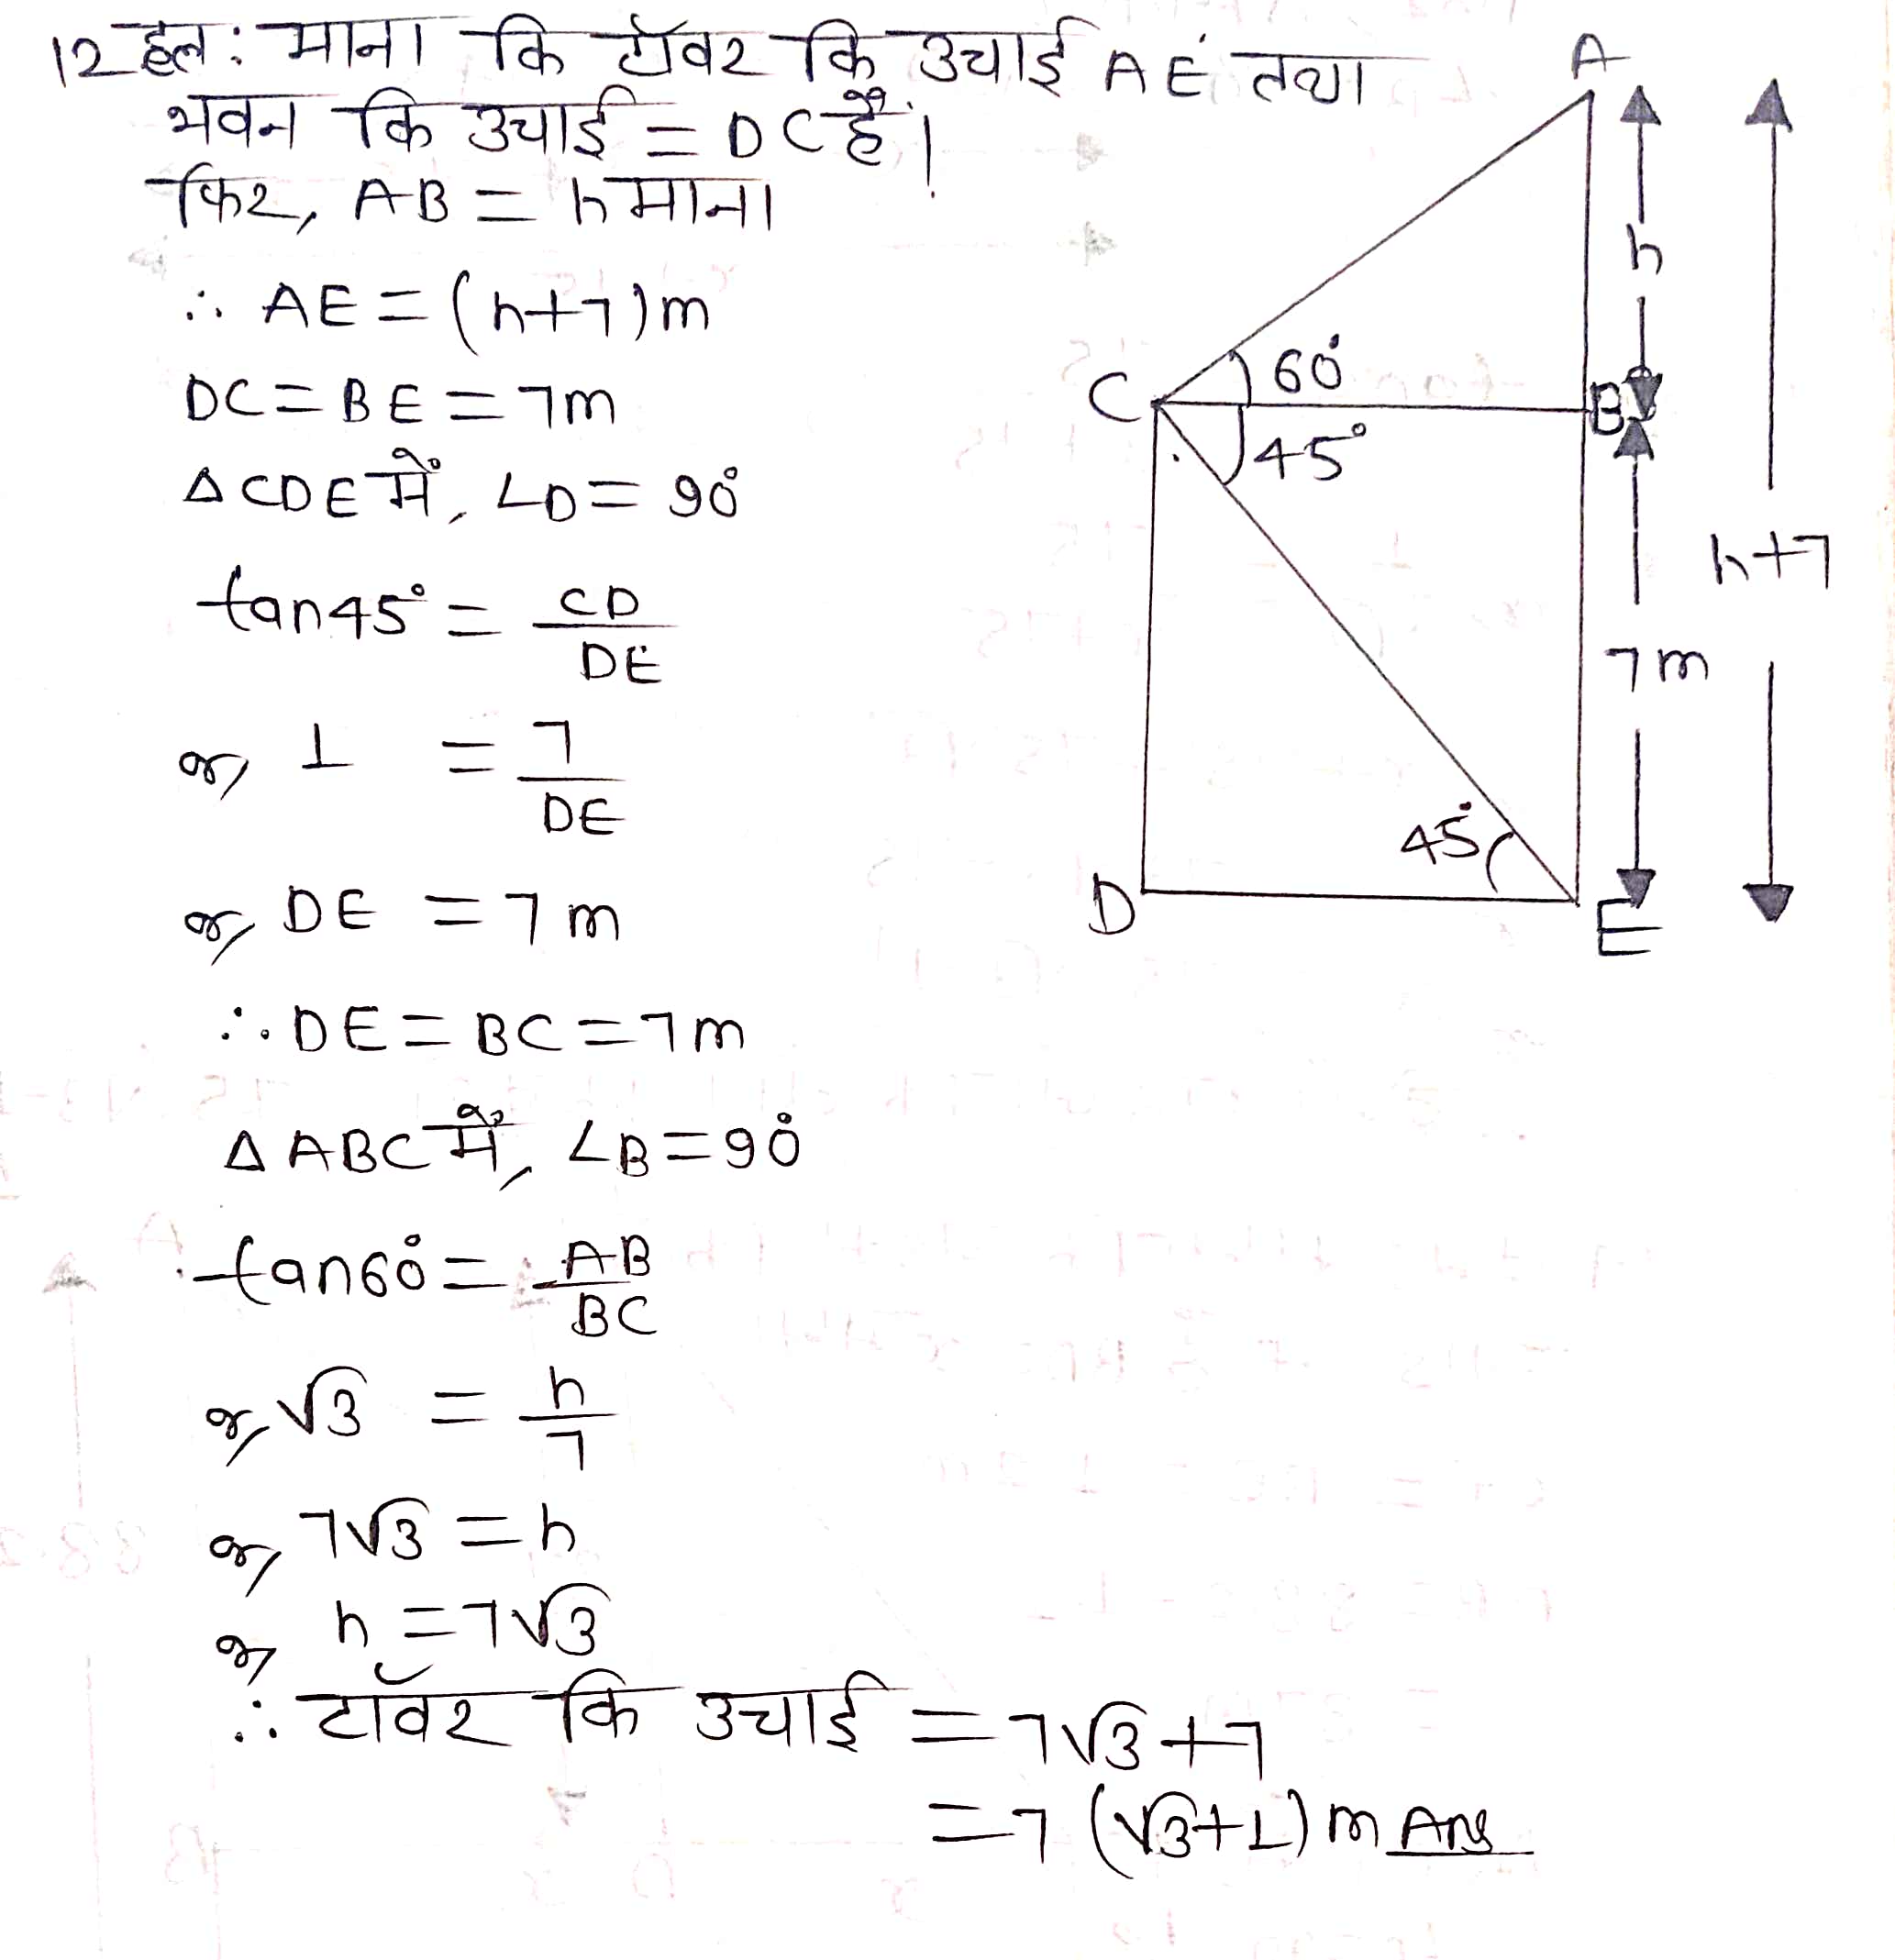 12 हल: माना कि टॉवर कि उचाई AE तथा
भवन कि उचाई = DC है।
फिर, AB = h माना
∴ AE = (h+7)m
DC = BE = 7m
△CDE में, ∠D = 90°
tan45° = CD/DE
or, 1 = 7/DE
or, DE = 7m
∴ DE = BC = 7m
△ABC में, ∠B = 90°
tan60° = AB/BC
or, √3 = h/7
or, 7√3 = h
or, h = 7√3
∴ टॉवर कि उचाई = 7√3+7
= 7(√3+1)m Ans
A
h
60°
C
B
45°
h+7
7m
45°
D
E